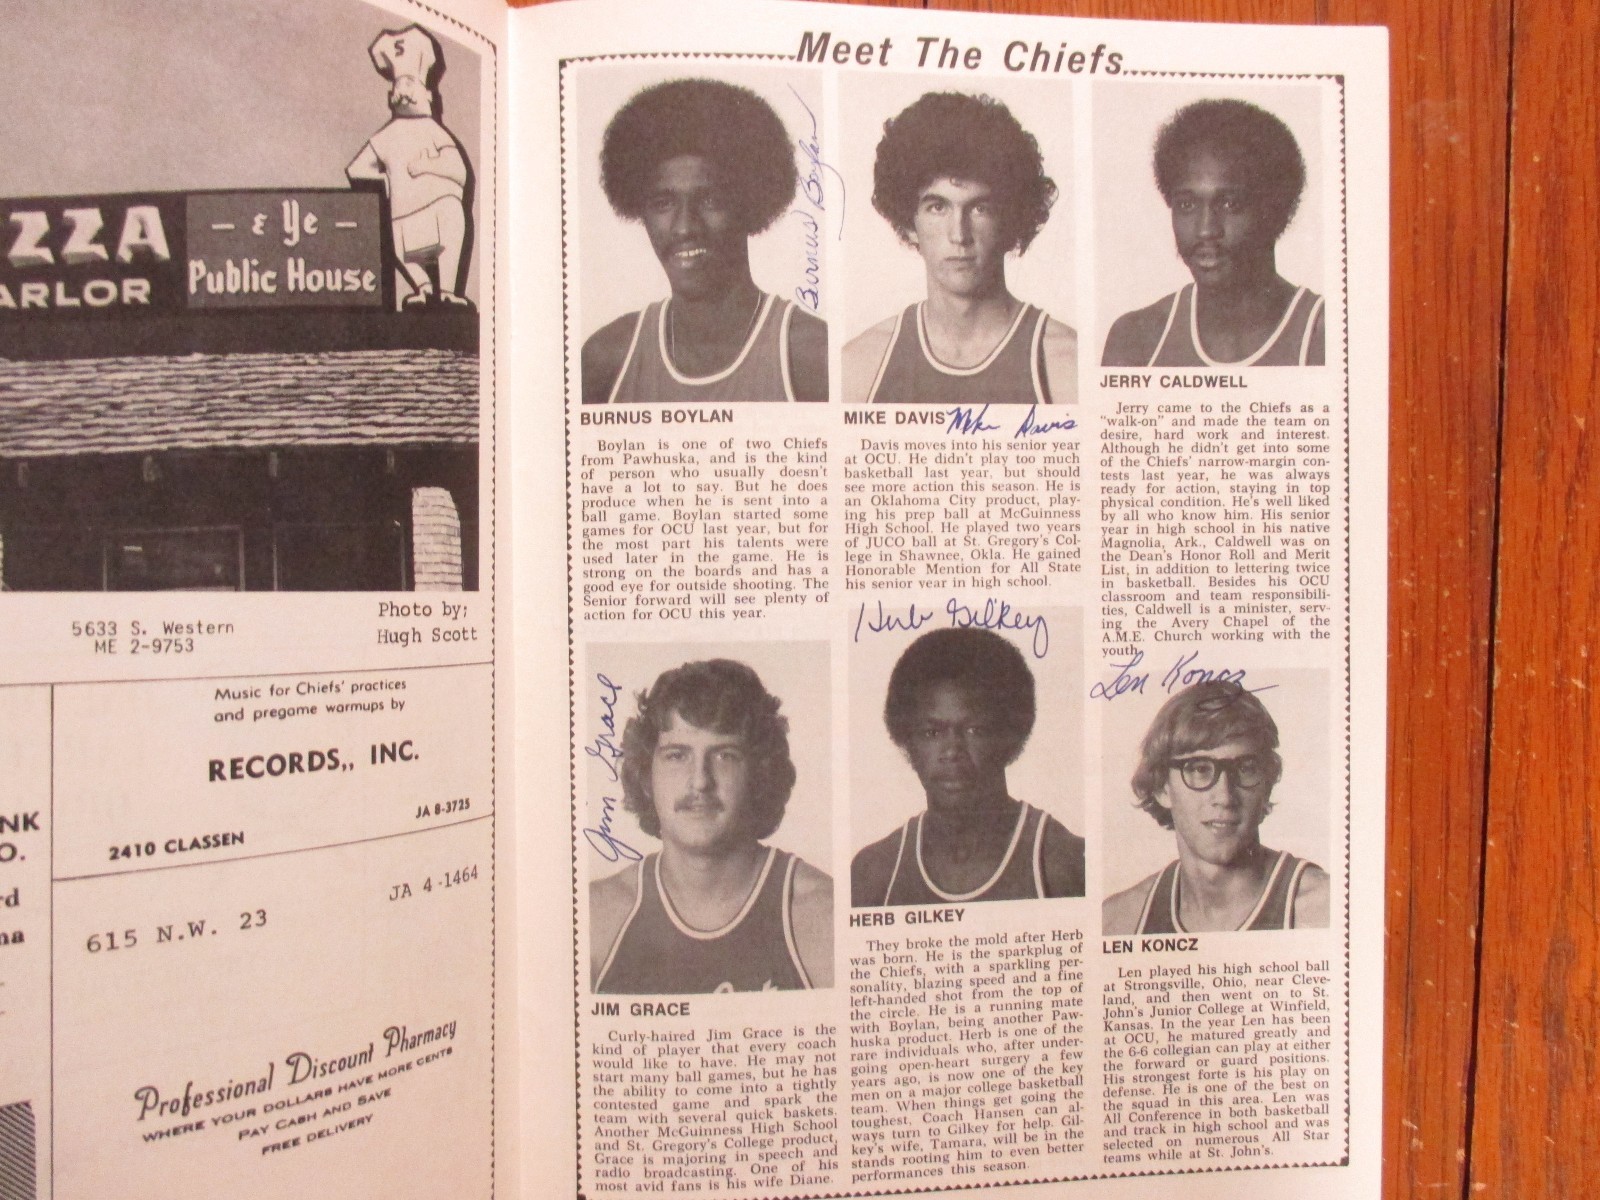 S
ZZA
ARLOR
— & Ye —
Public House
5633 S. Western
ME 2-9753
Photo by;
Hugh Scott
NK
O.
rd
ma
Music for Chiefs' practices
and pregame warmups by
RECORDS,, INC.
JA 8-3725
2410 CLASSEN
JA 4-1464
615 N.W. 23
Professional Discount Pharmacy
WHERE YOUR DOLLARS HAVE MORE CENTS
PAY CASH AND SAVE
FREE DELIVERY
Meet The Chiefs
Burnus Boylan
BURNUS BOYLAN
Boylan is one of two Chiefs
from Pawhuska, and is the kind
of person who usually doesn't
have a lot to say. But he does
produce when he is sent into a
ball game. Boylan started some
games for OCU last year, but for
the most part his talents were
used later in the game. He is
strong on the boards and has a
good eye for outside shooting. The
Senior forward will see plenty of
action for OCU this year.
MIKE DAVIS Mike Davis
Davis moves into his senior year
at OCU. He didn't play too much
basketball last year, but should
see more action this season. He is
an Oklahoma City product, play-
ing his prep ball at McGuinness
High School. He played two years
of JUCO ball at St. Gregory's Col-
lege in Shawnee, Okla. He gained
Honorable Mention for All State
his senior year in high school.
JERRY CALDWELL
Jerry came to the Chiefs as a
"walk-on" and made the team on
desire, hard work and interest.
Although he didn't get into some
of the Chiefs' narrow-margin con-
tests last year, he was always
ready for action, staying in top
physical condition. He's well liked
by all who know him. His senior
year in high school in his native
Magnolia, Ark., Caldwell was on
the Dean's Honor Roll and Merit
List, in addition to lettering twice
in basketball. Besides his OCU
classroom and team responsibili-
ties, Caldwell is a minister, serv-
ing the Avery Chapel of the
A.M.E. Church working with the
youth.
Jim Grace
JIM GRACE
Curly-haired Jim Grace is the
kind of player that every coach
would like to have. He may not
start many ball games, but he has
the ability to come into a tightly
contested game and spark the
team with several quick baskets.
Another McGuinness High School
and St. Gregory's College product,
Grace is majoring in speech and
radio broadcasting. One of his
most avid fans is his wife Diane.
Herb Gilkey
HERB GILKEY
They broke the mold after Herb
was born. He is the sparkplug of
the Chiefs, with a sparkling per-
sonality, blazing speed and a fine
left-handed shot from the top of
the circle. He is a running mate
with Boylan, being another Paw-
huska product. Herb is one of the
rare individuals who, after under-
going open-heart surgery a few
years ago, is now one of the key
men on a major college basketball
team. When things get going the
toughest, Coach Hansen can al-
ways turn to Gilkey for help. Gil-
key's wife, Tamara, will be in the
stands rooting him to even better
performances this season.
Len Koncz
LEN KONCZ
Len played his high school ball
at Strongsville, Ohio, near Cleve-
land, and then went on to St.
John's Junior College at Winfield,
Kansas. In the year Len has been
at OCU, he matured greatly and
the 6-6 collegian can play at either
the forward or guard positions.
His strongest forte is his play on
defense. He is one of the best on
the squad in this area. Len was
All Conference in both basketball
and track in high school and was
selected on numerous All Star
teams while at St. John's.